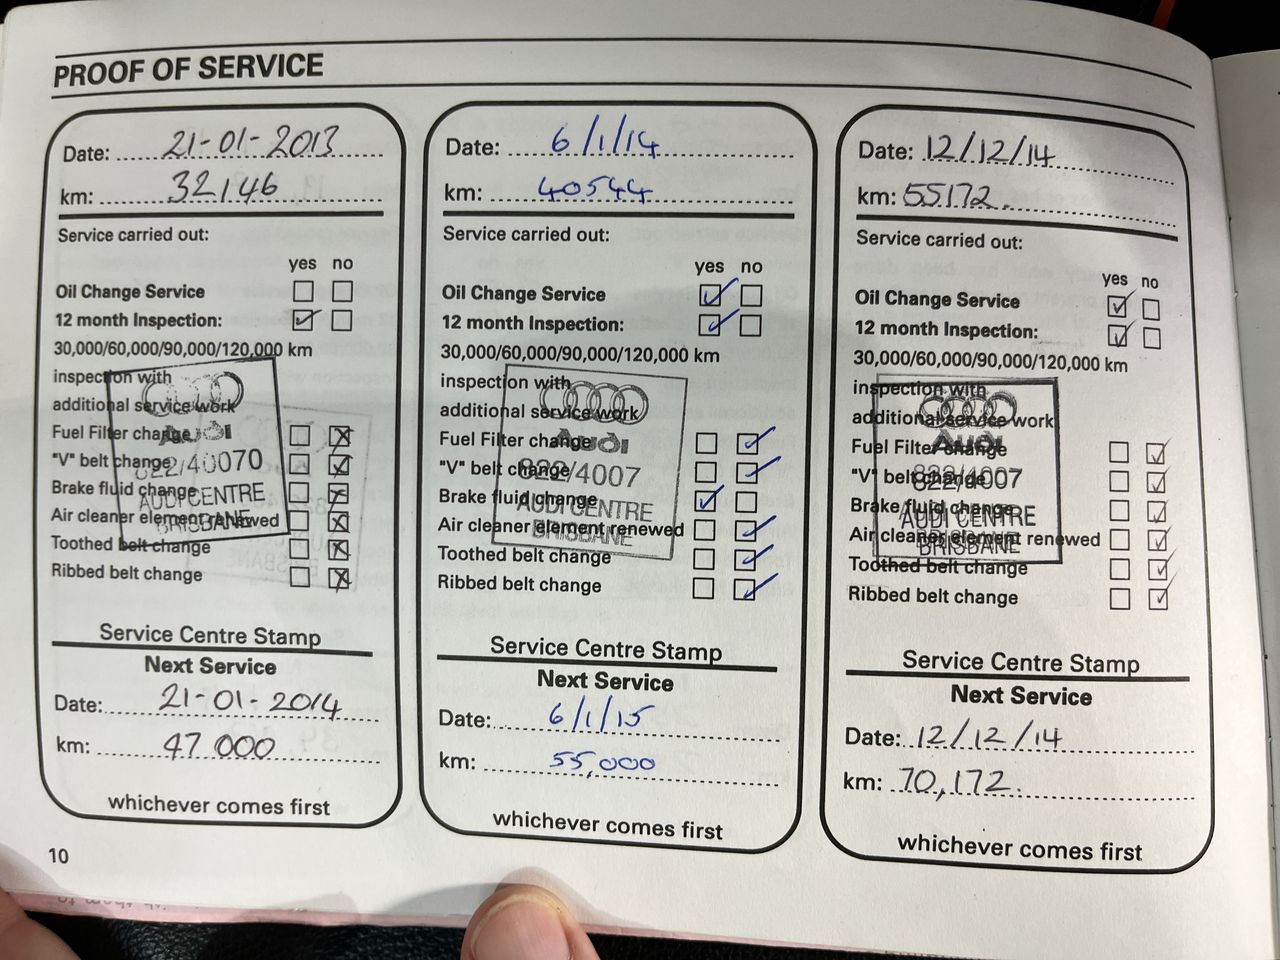 PROOF OF SERVICE
Date: 21-01-2013
km: 32146
Service carried out:
yes no
Oil Change Service
12 month Inspection:
30,000/60,000/90,000/120,000 km
inspection with
additional service work
Fuel Filter change
"V" belt change
Brake fluid change
Air cleaner element renewed
Toothed belt change
Ribbed belt change
Audi
822/40070
AUDI CENTRE
BRISBANE
Service Centre Stamp
Next Service
Date: 21-01-2014
km: 47.000
whichever comes first
Date: 6/1/14
km: 40544
Service carried out:
yes no
Oil Change Service
12 month Inspection:
30,000/60,000/90,000/120,000 km
inspection with
additional service work
Fuel Filter change
"V" belt change
Brake fluid change
Air cleaner element renewed
Toothed belt change
Ribbed belt change
Audi
822/4007
AUDI CENTRE
BRISBANE
Service Centre Stamp
Next Service
Date: 6/1/15
km: 55,000
whichever comes first
Date: 12/12/14
km: 55172.
Service carried out:
yes no
Oil Change Service
12 month Inspection:
30,000/60,000/90,000/120,000 km
inspection with
additional service work
Fuel Filter change
"V" belt change
Brake fluid change
Air cleaner element renewed
Toothed belt change
Ribbed belt change
Audi
822/4007
AUDI CENTRE
BRISBANE
Service Centre Stamp
Next Service
Date: 12/12/14
km: 70,172.
whichever comes first
10